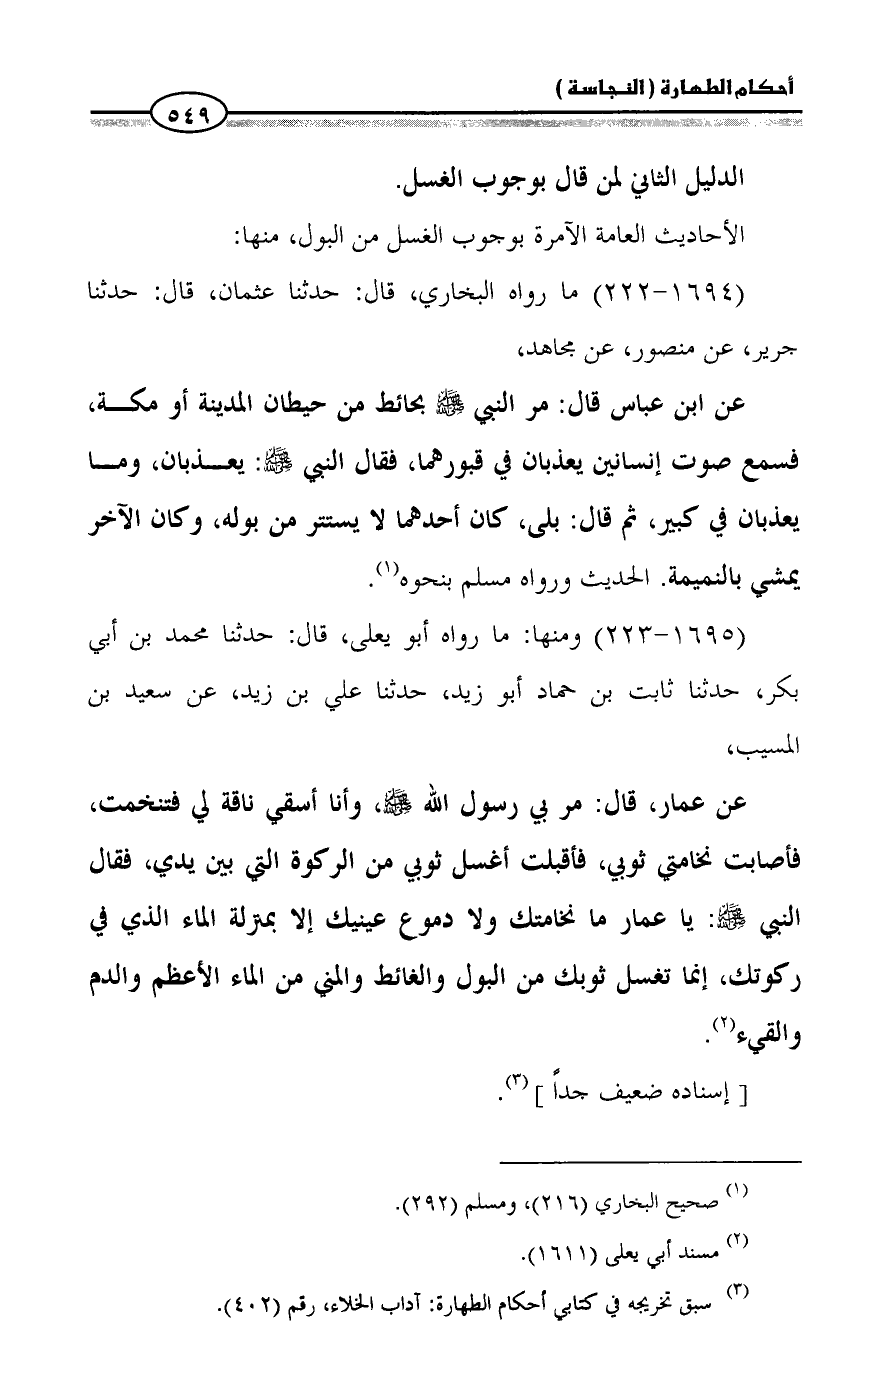 أحكام الطهارة ( النجاسة )
٥٤٩
الدليل الثاني لمن قال بوجوب الغسل.
الأحاديث العامة الآمرة بوجوب الغسل من البول، منها:
(١٦٩٤-٢٢٢) ما رواه البخاري، قال: حدثنا عثمان، قال: حدثنا
جرير، عن منصور، عن مجاهد،
عن ابن عباس قال: مر النبي ﷺ بحائط من حيطان المدينة أو مكـــة،
فسمع صوت إنسانين يعذبان في قبورهما، فقال النبي ﷺ: يعـــذبان، ومـــا
يعذبان في كبير، ثم قال: بلى، كان أحدهما لا يستتر من بوله، وكان الآخر
يمشي بالنميمة. الحديث ورواه مسلم بنحوه(١).
(١٦٩٥-٢٢٣) ومنها: ما رواه أبو يعلى، قال: حدثنا محمد بن أبي
بكر، حدثنا ثابت بن حماد أبو زيد، حدثنا علي بن زيد، عن سعيد بن
المسيب،
عن عمار، قال: مر بي رسول الله ﷺ، وأنا أسقي ناقة لي فتنخمت،
فأصابت نخامتي ثوبي، فأقبلت أغسل ثوبي من الركوة التي بين يدي، فقال
النبي ﷺ: يا عمار ما نخامتك ولا دموع عينيك إلا بمنزلة الماء الذي في
ركوتك، إنما تغسل ثوبك من البول والغائط والمني من الماء الأعظم والدم
والقيء(٢).
[ إسناده ضعيف جداً ](٣).
(١) صحيح البخاري (٢١٦)، ومسلم (٢٩٢).
(٢) مسند أبي يعلى (١٦١١).
(٣) سبق تخريجه في كتابي أحكام الطهارة: آداب الخلاء، رقم (٤٠٢).